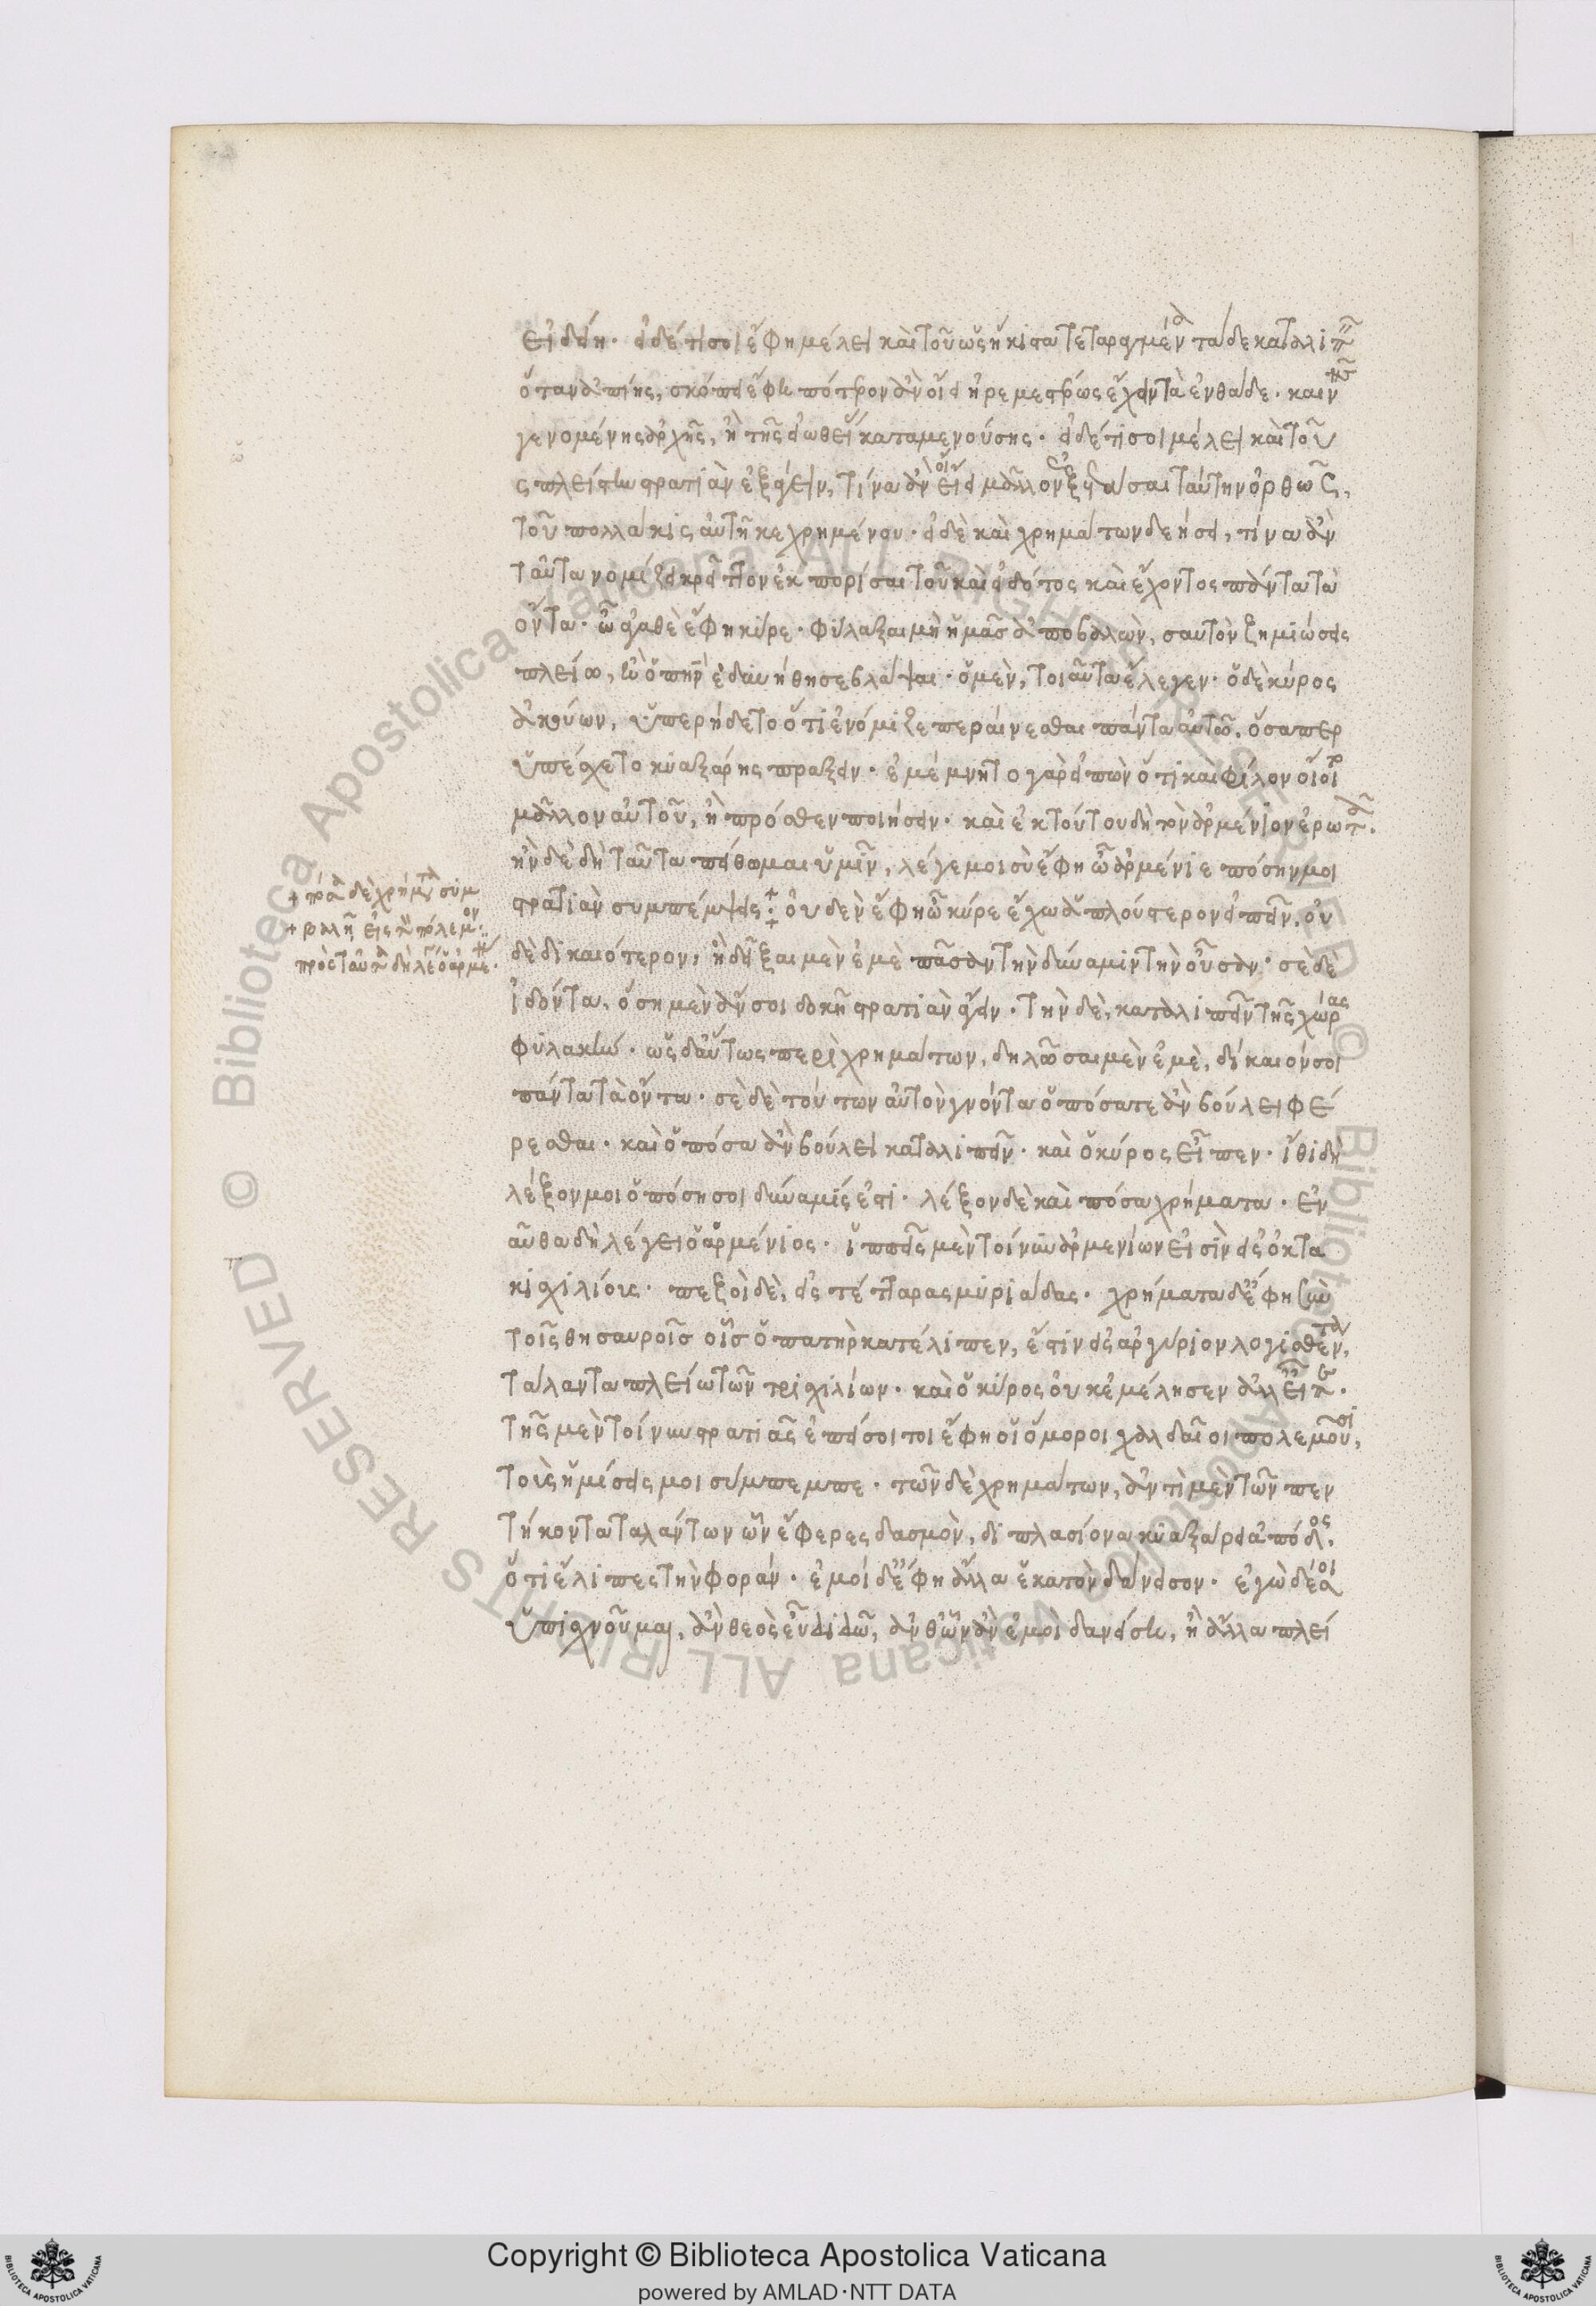 εἰδείη. εἰ δέ τί σοι ἔφη μέλει καὶ τοῦ ὡς ἥκιστα τεταραγμένα τἀ(ν)θάδε καταλιπεῖν
ὅταν ἀπίῃς, σκόπει ἔφη πότερον ἂν οἴει ἠρεμεστέρως ἔχειν τὰ ἐνθάδε. καινῆς
γενομένης ἀρχῆς, ἢ τῆς εἰωθυίας καταμενούσης. εἰ δέ τί σοι μέλει καὶ τοῦ
ὡς πλείστην στρατιὰν ἐξάγειν, τίνα ἂν οἴει μᾶλλον ἐξετάσαι ταύτην ὀρθῶς,
τοῦ πολλάκις αὐτῇ κεχρημένου. εἰ δὲ καὶ χρημάτων δεήσει, τίνα ἂν
ταῦτα νομίζεις κρεῖττον ἐκπορίσαι τοῦ καὶ εἰδότος καὶ ἔχοντος πάντα τὰ
ὄντα. ὦ ἀγαθὲ ἔφη κῦρε. φύλαξαι μὴ ἡμᾶς ἀποβαλὼν, σαυτὸν ζημιώσεις
πλείω, ἢ ὁ πατὴρ ἐδυνήθη σε βλάψαι. ὁ μὲν, τοιαῦτα ἔλεγεν. ὁ δὲ κύρος
ἀκούων, ὑπερήδετο ὅτι ἐνόμιζε περαίνεσθαι πάντα αὐτῷ, ὅσαπερ
ὑπέσχετο κυαξάρης πράξειν. ἐμέμνητο γὰρ εἰπὼν ὅτι καὶ φίλον οἴοιτο
μᾶλλον αὐτοῦ, ἢ πρόσθεν ποιήσειν. καὶ ἐκ τούτου δὴ τὸν ἀρμένιον ἐρωτᾷ.
ἢν δὲ δὴ ταῦτα πείθωμαι ὑμῖν, λέγε μοι σὺ ἔφη ὦ ἀρμένιε πόσην μοι
στρατιὰν συμπέμψεις : οὐδὲν ἔφη ὦ κύρε ἔχω ἁπλούστερον εἰπεῖν, οὐ
δὲ δικαιότερον, ἢ δεῖξαι μὲν ἐμὲ πᾶσαν τὴν δύναμιν τὴν οὖσαν. σὲ δὲ
ἰδόντα, ὅση μὲν ἄν σοι δοκῇ στρατιὰν ἄγειν. τὴν δὲ, καταλιπεῖν τῆς χώρας
φυλακήν. ὡς δ' αὔτως περὶ χρημάτων, δηλῶσαι μὲν ἐμὲ, δίκαιόν σοι
πάντα τὰ ὄντα. σὲ δὲ τούτων αὐτὸν γνόντα ὁπόσα τε ἂν βούλει φέ
ρεσθαι. καὶ ὁπόσα ἂν βούλει καταλιπεῖν. καὶ ὁ κύρος εἶπεν. ἴθι δὴ
λέξον μοι ὁπόση σοι δύναμίς ἐστι. λέξον δὲ καὶ πόσα χρήματα. ἐν
αῦθα δὴ λέγει ὁ ἀρμένιος. ἱππεῖς μὲν τοίνυν ἀρμενίων εἰσὶν εἰς ὀκτα
κισχιλίους. πεζοὶ δὲ, εἰς τέτταρας μυριάδας. χρήματα δ' ἔφη σὺν
τοῖς θησαυροῖς οἷς ὁ πατὴρ κατέλιπεν, ἔστιν εἰς ἀργύριον λογισθέντα,
τάλαντα πλείω τῶν τρισχιλίων. καὶ ὁ κύρος οὐκ ἐμέλησεν ἀλλ' εἶπε.
τῆς μὲν τοίνυν στρατιᾶς ἐπεί σοί τοι ἔφη οἱ ὅμοροι χαλδαῖοι πολεμοῦσι,
τοὺς ἡμίσεις μοι σύμπεμπε. τῶν δὲ χρημάτων, ἀντὶ μὲν τῶν πεν
τήκοντα ταλάντων ὧν ἔφερες δασμὸν, διπλασίονα κυαξάρει ἀπόδος,
ὅτι ἔλιπες τὴν φοράν. ἐμοὶ δ' ἔφη ἄλλα ἑκατὸν δάνεισον. ἐγὼ δέ σοι
ὑπισχνοῦμαι, ἂν θεὸς εὖ διδῷ, ἀνθ' ὧν ἂν ἐμοὶ δανείσῃς, ἢ ἄλλα πλεί
+ πόσα δὲ χρήματα συμ
+ βαλῇ εἰς τὸν πόλεμον :
πρὸς ταῦτα δὴ λέγει ὁ ἀρμένιος.